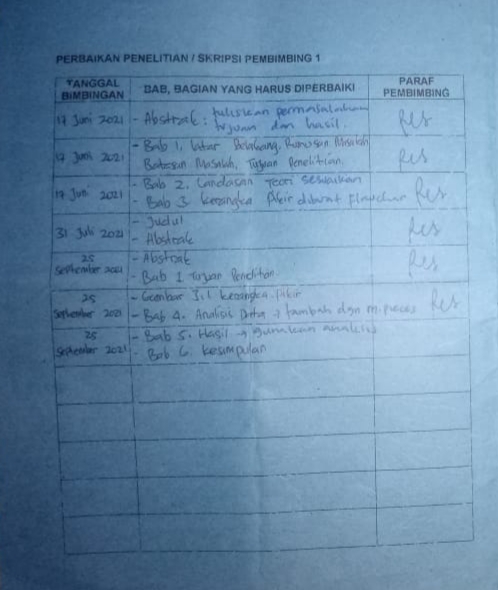 PERBAIKAN PENELITIAN / SKRIPSI PEMBIMBING 1
TANGGAL BIMBINGAN BAB, BAGIAN YANG HARUS DIPERBAIKI PARAF PEMBIMBING
17 Juni 2021 - Abstrak : tuliskan permasalahan
tujuan dan hasil.
17 Juni 2021 - Bab 1. Latar Belakang, Rumusan Masalah
Batasan Masalah, Tujuan Penelitian.
17 Juni 2021 - Bab 2. Landasan Teori sesuaikan
- Bab 3. kerangka Pikir dibuat flowchar
31 Juli 2021 - Judul
- Abstrak
25 September 2021 - Abstrak
- Bab 1 Tujuan Penelitian.
25 September 2021 - Gambar 3.1 kerangka Pikir
- Bab 4. Analisis Data → tambah dgn m. proces
25 September 2021 - Bab 5. Hasil → gunakan analisis
- Bab 6. kesimpulan